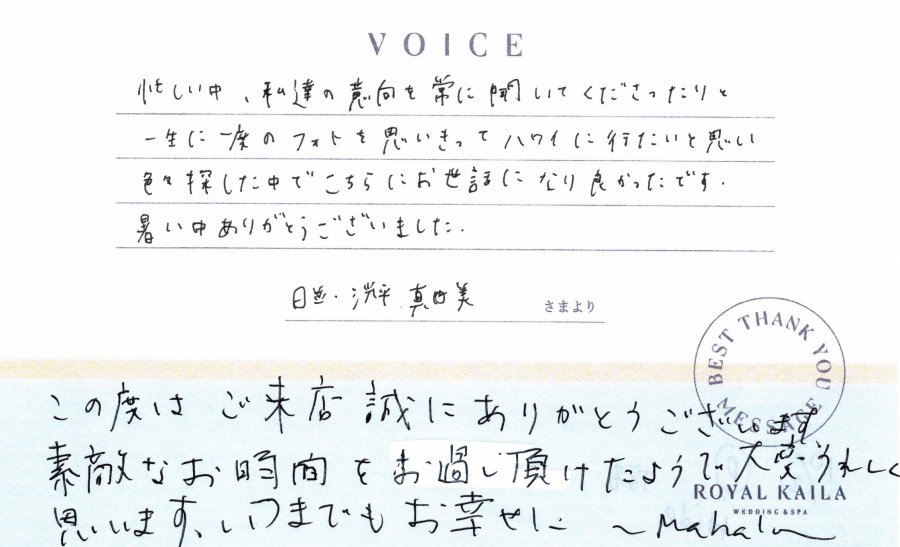 VOICE
忙しい中、私達の意向を常に聞いてくださったりと
一生に一度のフォトを思いきってハワイに行きたいと思い
色々探した中でこちらにお世話になり良かったです.
暑い中ありがとうございました.
日並・洋平 真由美 さまより
BEST THANK YOU MESSAGE
この度は ご来店誠にありがとうございます
素敵なお時間をお過し頂けたようで大変うれしく
ROYAL KAILA
WEDDING & SPA
思います、いつまでもお幸せに ～Mahalo～